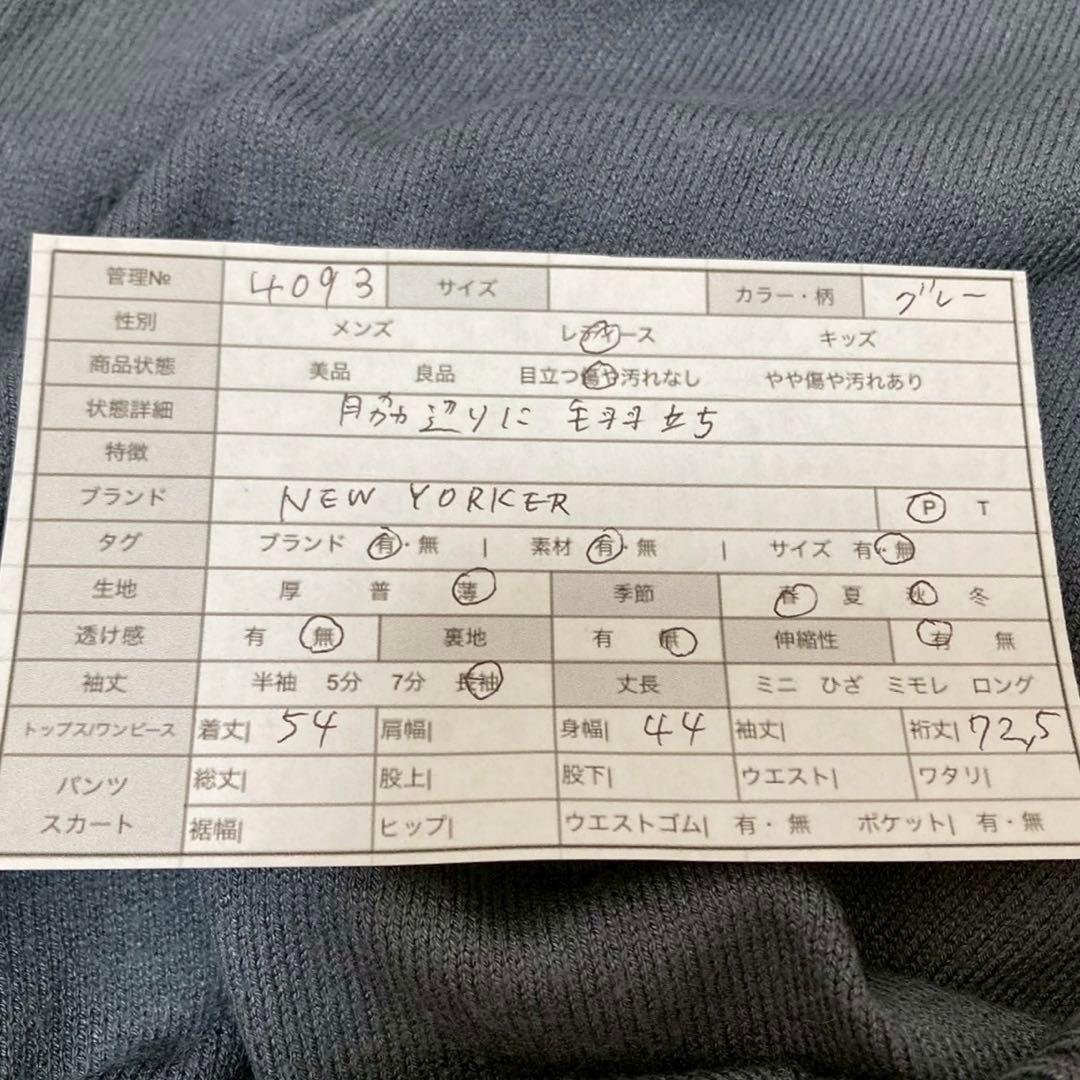 管理№ 4093 サイズ カラー・柄 グレー
性別 メンズ レディース キッズ
商品状態 美品 良品 目立つ傷や汚れなし やや傷や汚れあり
状態詳細 脇辺りに毛羽立ち
特徴
ブランド NEW YORKER P T
タグ ブランド 有・無 | 素材 有・無 | サイズ 有・無
生地 厚 普 薄 季節 春 夏 秋 冬
透け感 有 無 裏地 有 無 伸縮性 有 無
袖丈 半袖 5分 7分 長袖 丈長 ミニ ひざ ミモレ ロング
トップス/ワンピース 着丈| 54 肩幅| 身幅| 44 袖丈| 裄丈| 72,5
パンツ 総丈| 股上| 股下| ウエスト| ワタリ|
スカート 裾幅| ヒップ| ウエストゴム| 有・無 ポケット| 有・無